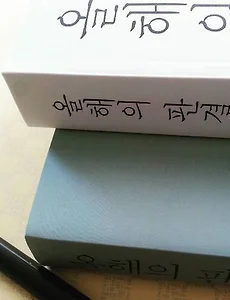 올해의
올해의 판결
올해의 판